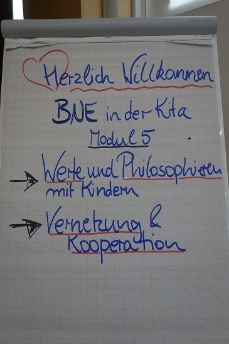 Herzlich Willkommen
BNE in der Kita
Modul 5
→ Werte und Philosophieren
mit Kindern
→ Vernetzung &
Kooperation